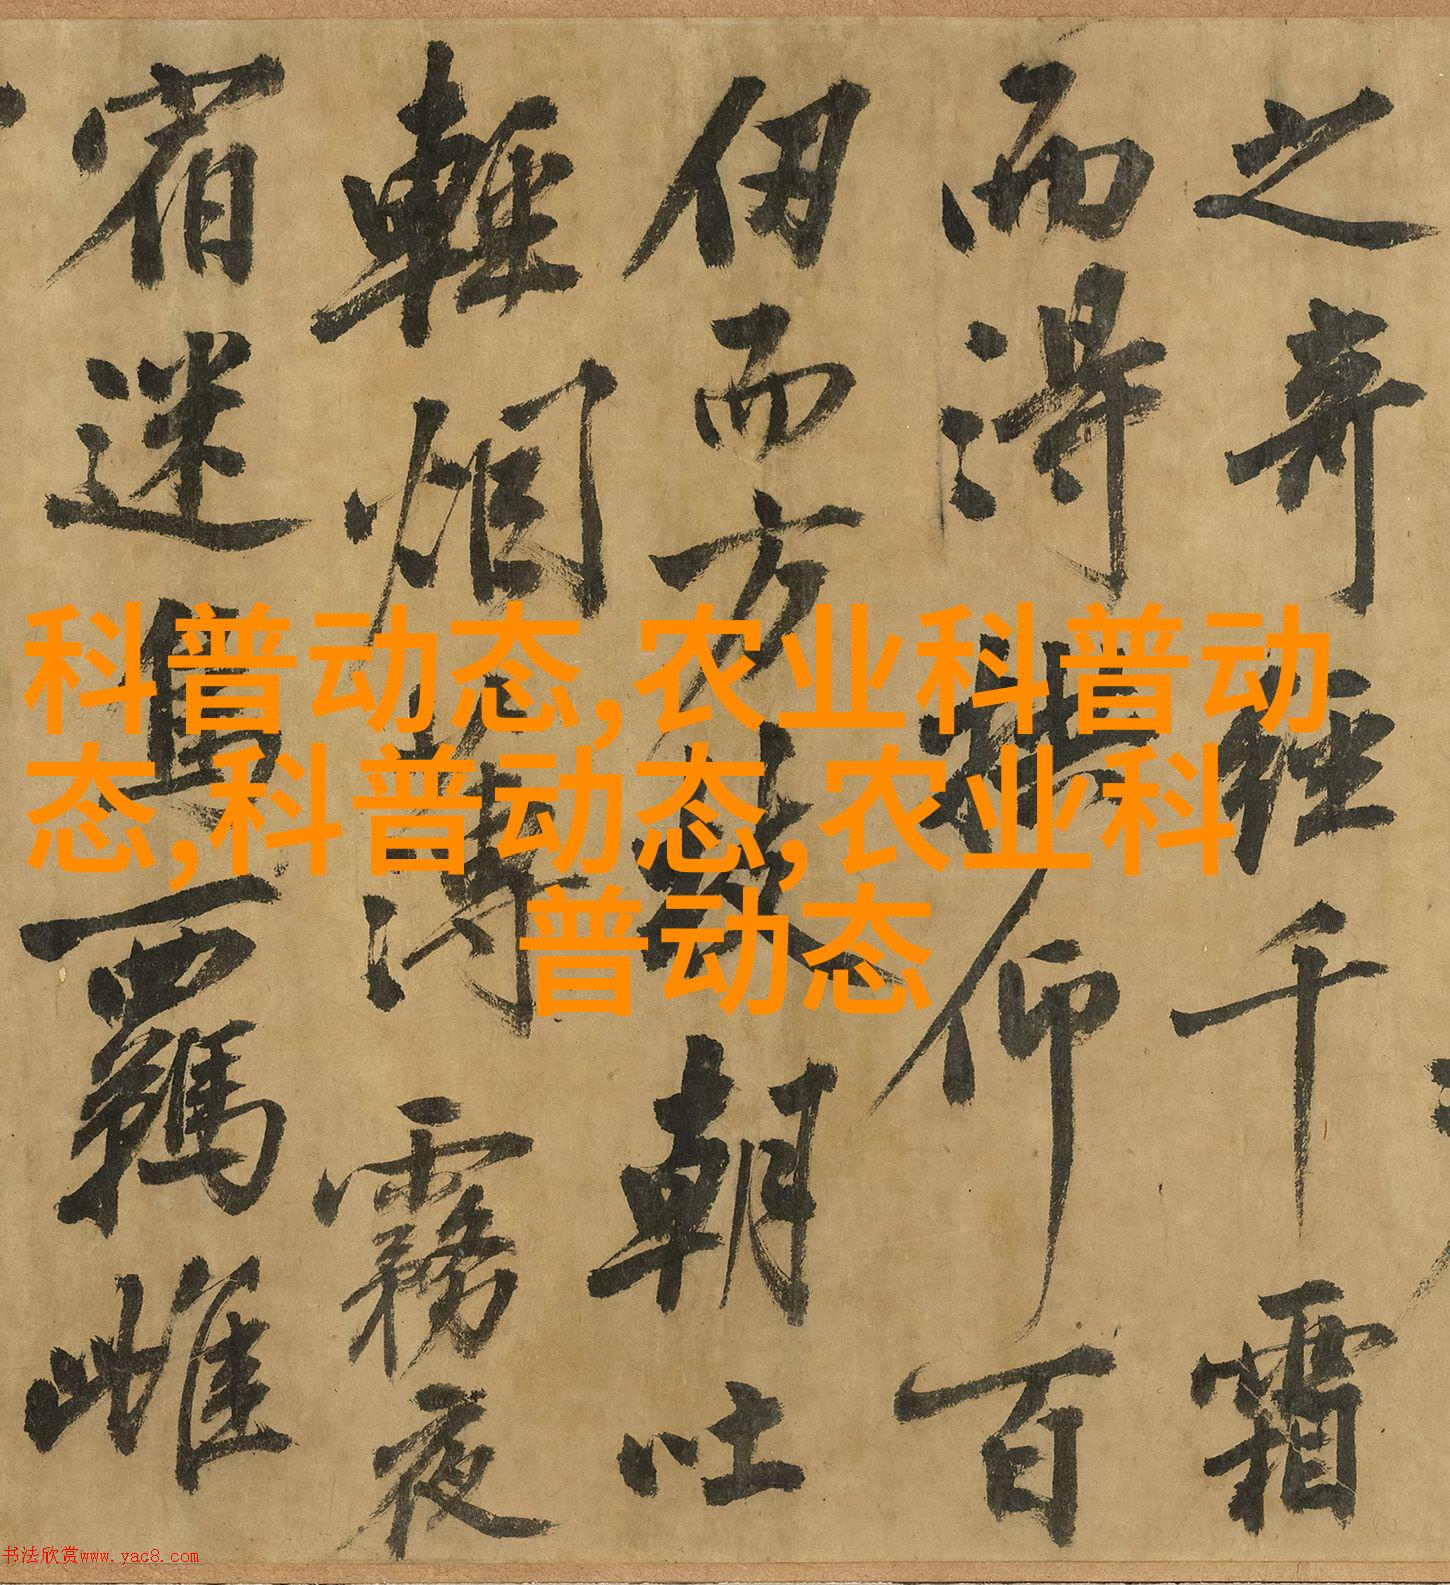 之奇經千霜
而得拱仰百
仞而方枝朝吐
輕烟薄霧夜
宿迷鳥羈雌
科普动态,农业科普动
态,科普动态,农业科
普动态
书法欣赏www.yac8.com